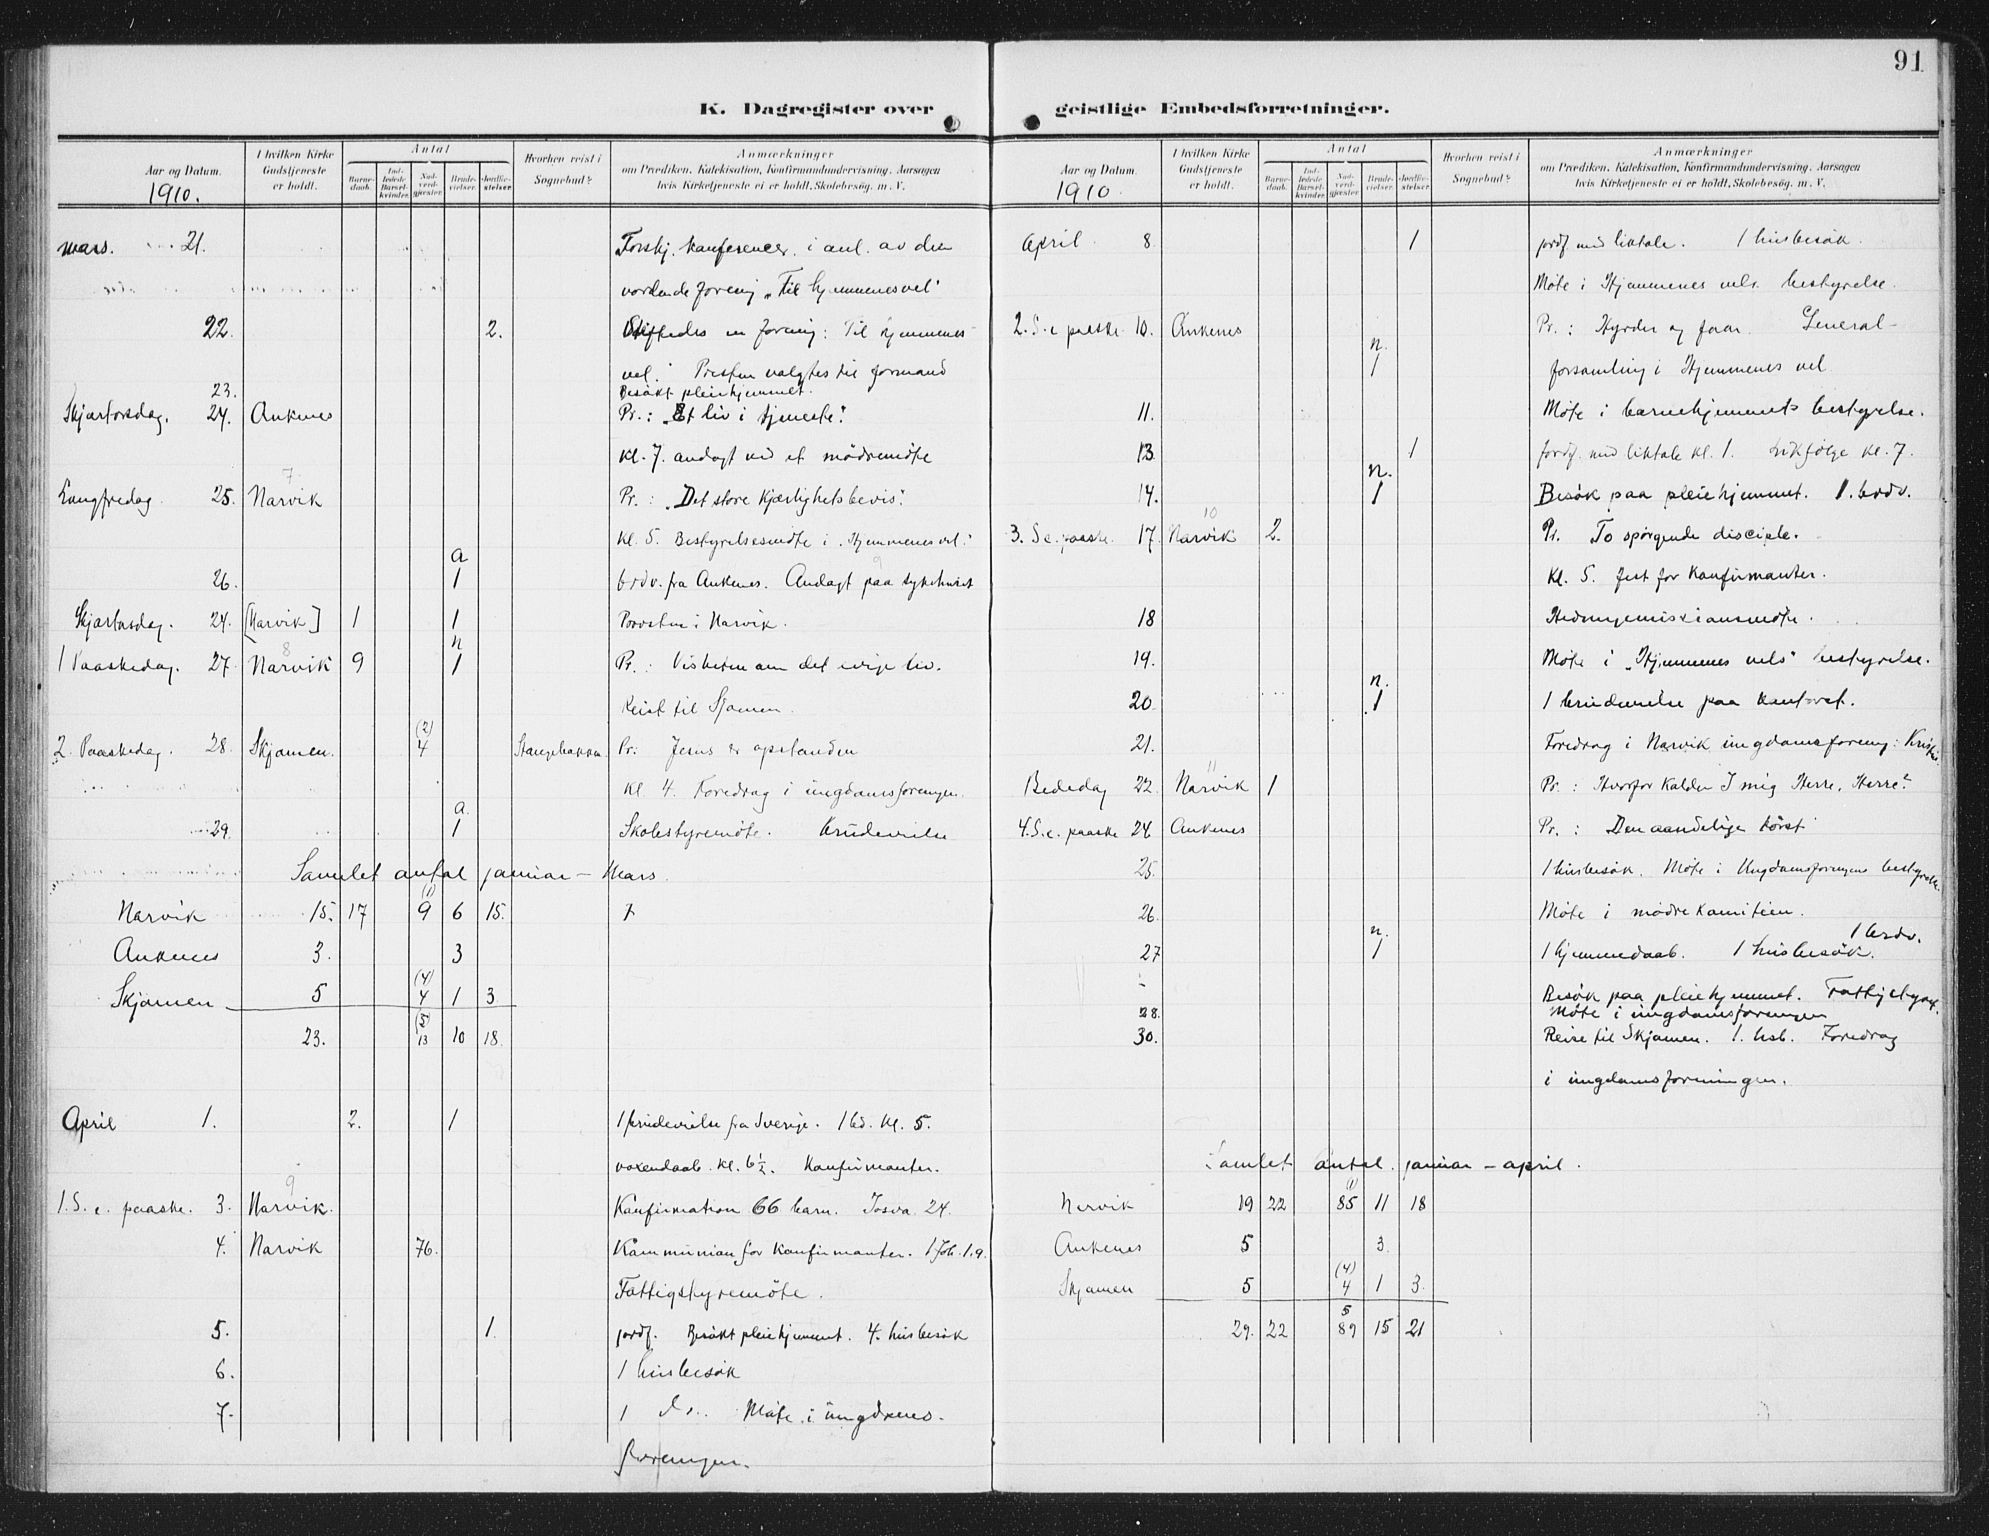 91
K. Dagregister over geistlige Embedsforretninger.
Aar og Datum. I hvilken Kirke Gudstjeneste er holdt. Antal Barnedaab. Indledede Barselkvinder. Nadverdgjæster. Brudevielser. Jordfæstelser. Hvorhen reist i Sognebud? Anmærkninger om Prædiken, Katekisation, Konfirmandundervisning, Aarsagen hvis Kirketjeneste ei er holdt, Skolebesøg. m. V.
1910.
mars. 21. Forskj. konferencer i anl. av den
vordende forening "Til hjemmenes vel"
22. 2. Stiftedes en forening: Til hjemmenes
vel. Presten valgtes til formand
23. Besøkt pleiehjemmet.
Skjærtorsdag. 24. Ankenes Pr.: "Et liv i tjeneste".
kl. 7. andagt ved et mödremöte
7
Langfredag. 25. Narvik Pr.: "Det store kjærlighetsbevis".
Kl. 5. Bestyrelsesmöte i "Hjemmenes vel."
a
26. 1 brdv. fra Ankenes. Andagt paa sykehuset
Skjærtorsdag. 24. [Narvik] 1 1 Provsten i Narvik.
8 n
1 Paaskedag. 27. Narvik 9 1 Pr.: Visheten om det evige liv.
Reist til Sjomen.
(2)
2. Paaskedag. 28. Skjomen. 4 Pr: Jesus er opstanden
Kl. 4. Foredrag i ungdomsforeningen.
a.
29. 1 Skolestyremöte. brudevielse
Samlet antal januar – Mars.
(1)
Narvik 15. 17 9 6 15. 7
Ankenes 3. 3
(4)
Skjomen 5 4 1 3
(5)
23. 13 10 18.
April 1. 2. 1 1 brudevielse fra Sverige. 1 bd. kl. 5.
voxendaab. kl. 6½. Konfirmanter.
9
1. S. e. paaske. 3. Narvik. Konfirmation 66 barn. Josva 24.
4. Narvik 76. Kommunion for konfirmanter. 1 Joh. 1.9.
Fattigstyremöte.
5. 1. jordf. Besökt pleiehjemmet. 4. husbesök
6. 1 husbesök
7. 1 do. Möte i ungdoms-
foreningen.
Aar og Datum. I hvilken Kirke Gudstjeneste er holdt. Antal Barnedaab. Indledede Barselkvinder. Nadverdgjæster. Brudevielser. Jordfæstelser. Hvorhen reist i Sognebud? Anmærkninger om Prædiken, Katekisation, Konfirmandundervisning, Aarsagen hvis Kirketjeneste ei er holdt, Skolebesøg. m. V.
1910
April 8. 1 jordf med liktale. 1 husbesök.
Möte i Hjemmenes vels bestyrelse.
2. S. e paaske 10. Ankenes n. 1 Pr.: Hyrder og faar. General-
forsamling i Hjemmenes vel
11. Möte i barnehjemmets bestyrelse.
13 1 jordf. med liktale kl. 1. Likfölge kl. 7.
n.
14. 1 Besök paa pleiehjemmet. 1. brdv.
10
3. S. e. paaske. 17. Narvik 2. Pr. To spörgende disciple.
Kl. 5. fest for konfirmanter.
18 Hedningemissionsmöte.
19. Möte i "Hjemmenes vels" bestyrelse.
n.
20 1 1 brudevielse paa kontoret.
21. Foredrag i Narvik ungdomsforening:
11
Bededag 22. Narvik 1 Pr.: Hvorfor kalder I mig Herre, Herre?
4. S. e. paaske 24 Ankenes Pr.: Den aandelige törst
25. 1 husbesök. Möte i Ungdomsforeningens bestyrelse.
26. Möte i mödrekomiteen.
n. 1 brdv.
27 1 1 hjemmedaab. 1 husbesök.
Besök paa pleiehjemmet. Fattigstyre.
28. Möte i ungdomsforeningen
30. Reise til Skjomen. 1. hsb. Foredrag
i ungdomsforeningen.
Samlet antal januar – april.
(1)
Narvik 19 22 85 11 18
Ankenes 5 3.
(4)
Skjomen 5 4 1 3.
5
29. 22 89 15 21